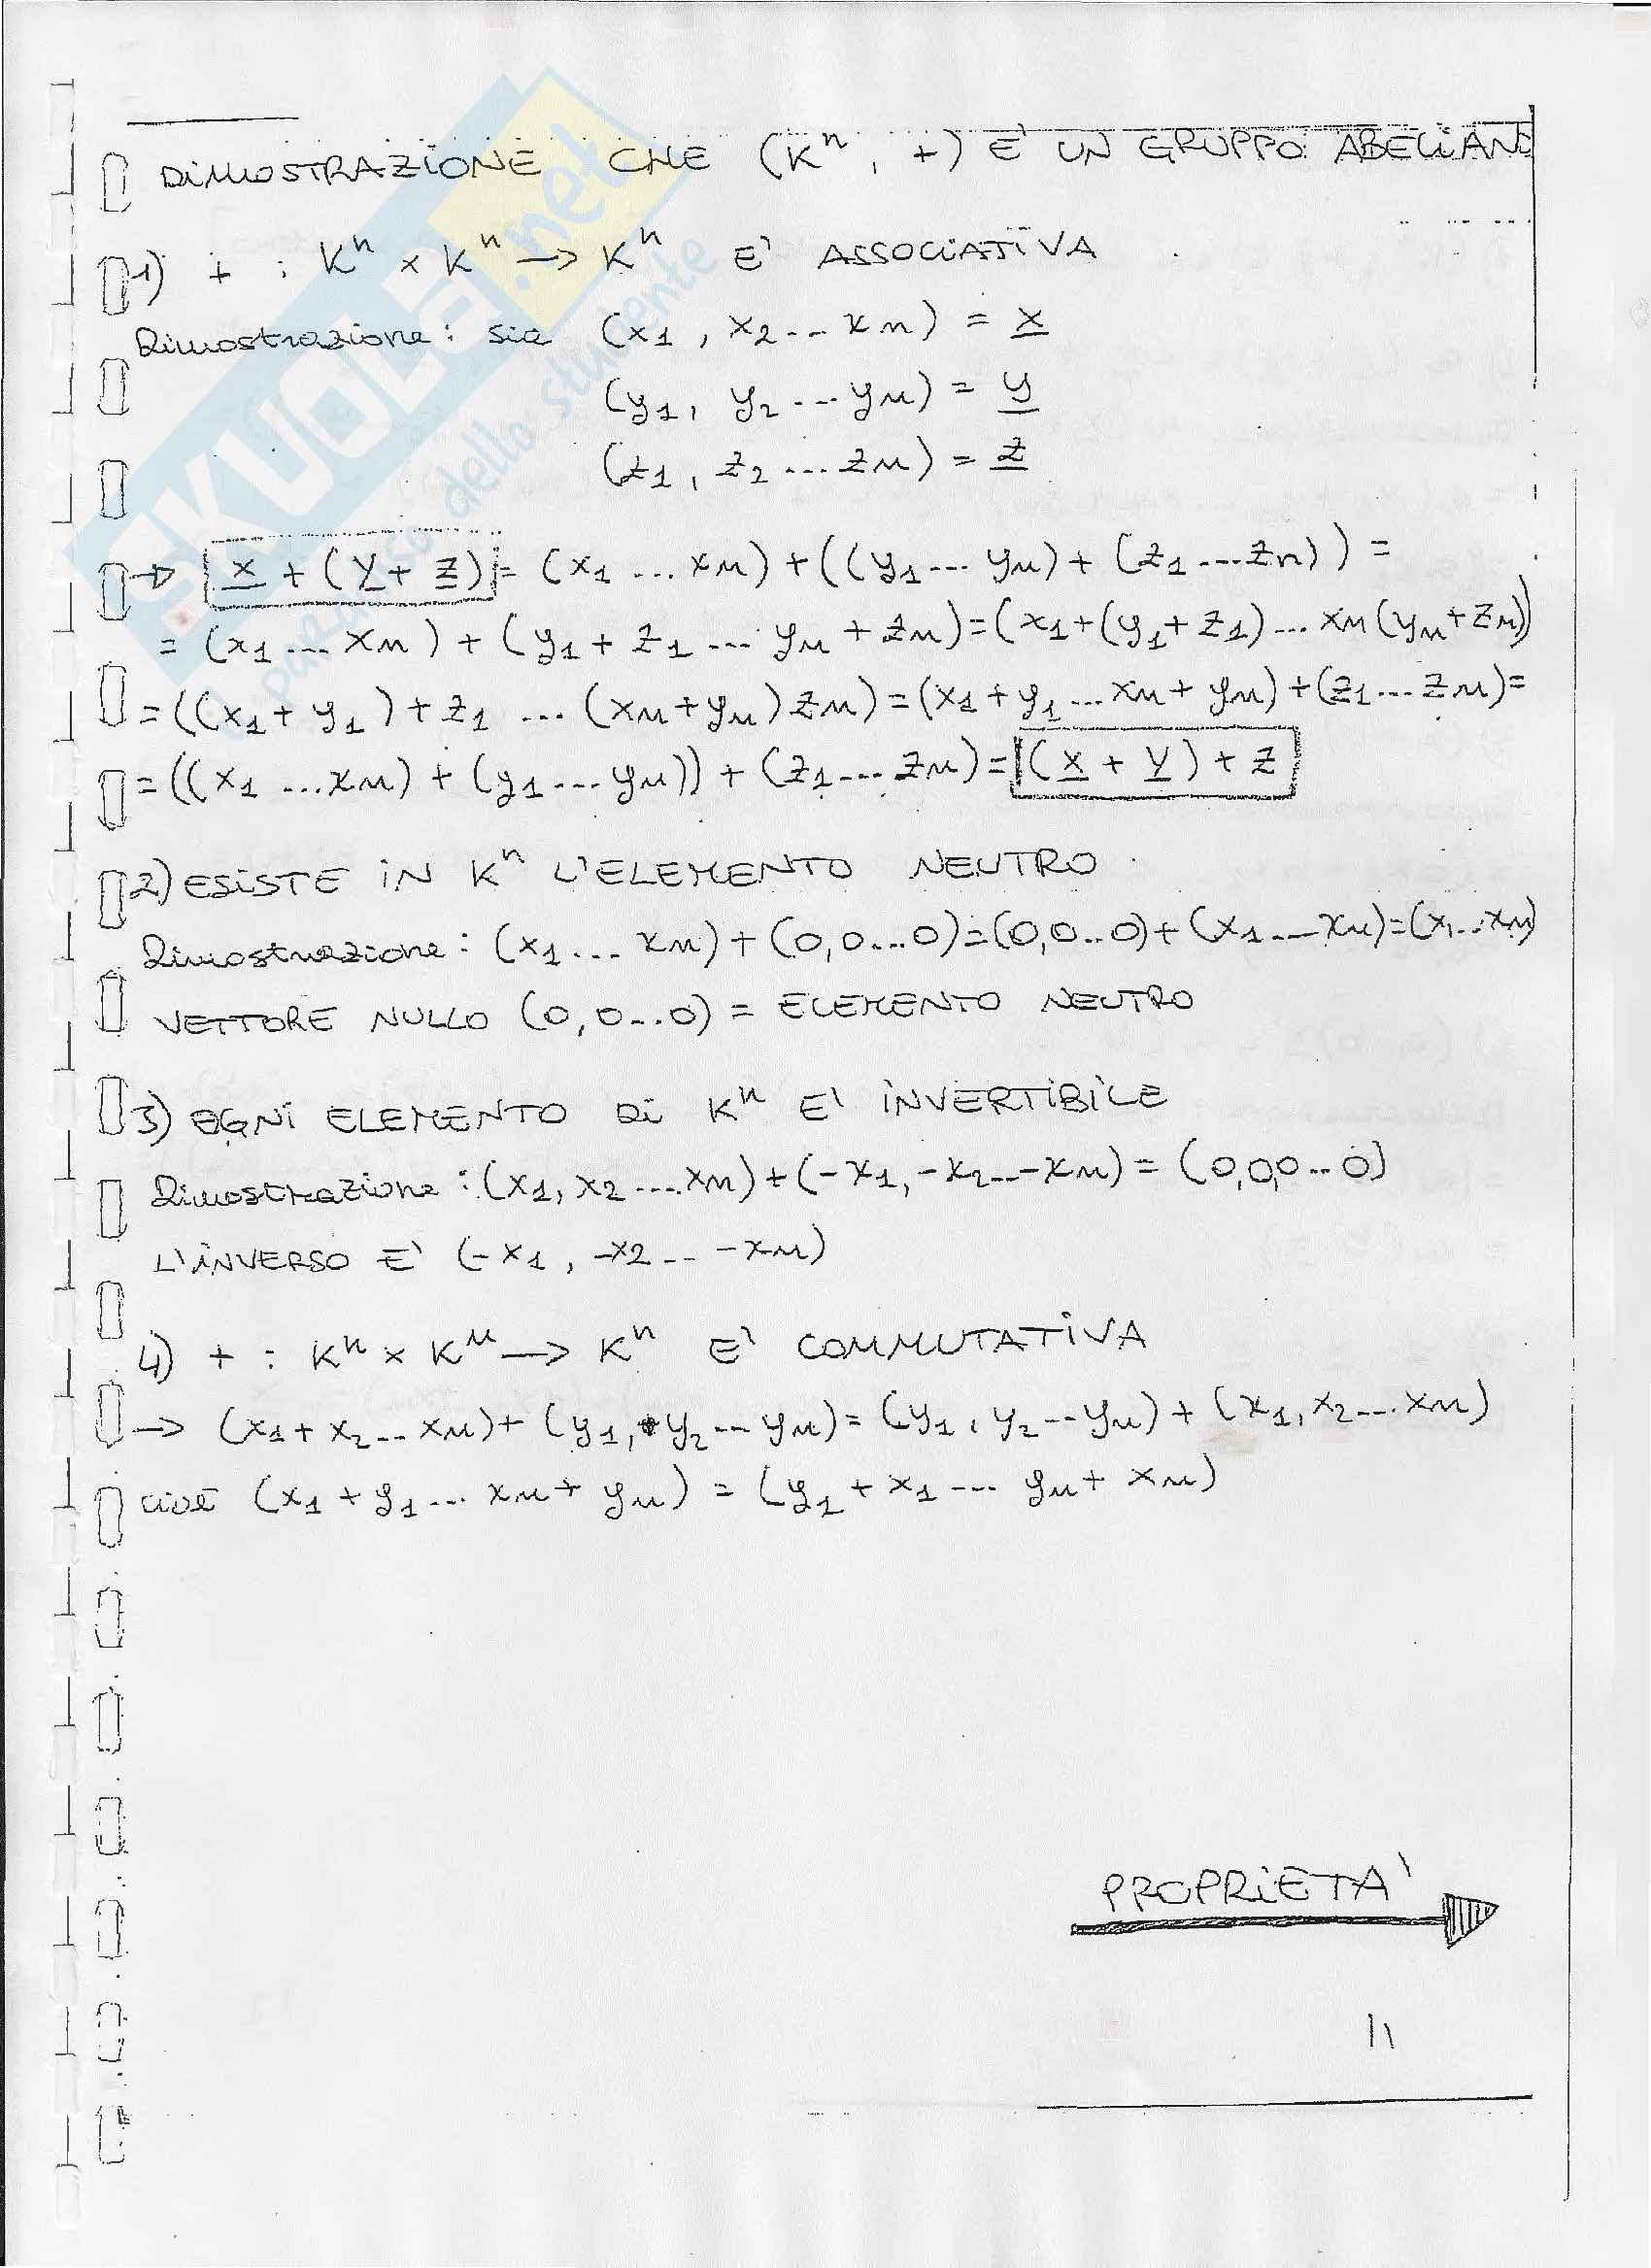 DIMOSTRAZIONE CHE (Kⁿ, +) E' UN GRUPPO ABELIANO
1) + : Kⁿ × Kⁿ → Kⁿ E' ASSOCIATIVA
Dimostrazione: sia (x1, x2...xn) = x
(y1, y2...yn) = y
(z1, z2...zn) = z
→ x + (y + z) = (x1...xn) + ((y1...yn) + (z1...zn)) =
= (x1...xn) + (y1 + z1...yn + zn) = (x1 + (y1 + z1)...xn(yn + zn))
= ((x1 + y1) + z1 ... (xn + yn) zn) = (x1 + y1...xn + yn) + (z1...zn) =
= ((x1...xn) + (y1...yn)) + (z1...zn) = (x + y) + z
2) ESISTE IN Kⁿ L'ELEMENTO NEUTRO
Dimostrazione: (x1...xn) + (0,0...0) = (0,0..0) + (x1...xn) = (x1...xn)
VETTORE NULLO (0,0...0) = ELEMENTO NEUTRO
3) OGNI ELEMENTO DI Kⁿ E' INVERTIBILE
Dimostrazione: (x1, x2...xn) + (-x1, -x2...-xn) = (0,0,0..0)
L'INVERSO E' (-x1, -x2... -xn)
4) + : Kⁿ × Kⁿ → Kⁿ E' COMMUTATIVA
→ (x1 + x2...xn) + (y1, y2...yn) = (y1, y2...yn) + (x1, x2...xn)
cioè (x1 + y1...xn + yn) = (y1 + x1...yn + xn)
PROPRIETA'
11
SKUOLA.net
paradiso dello studente